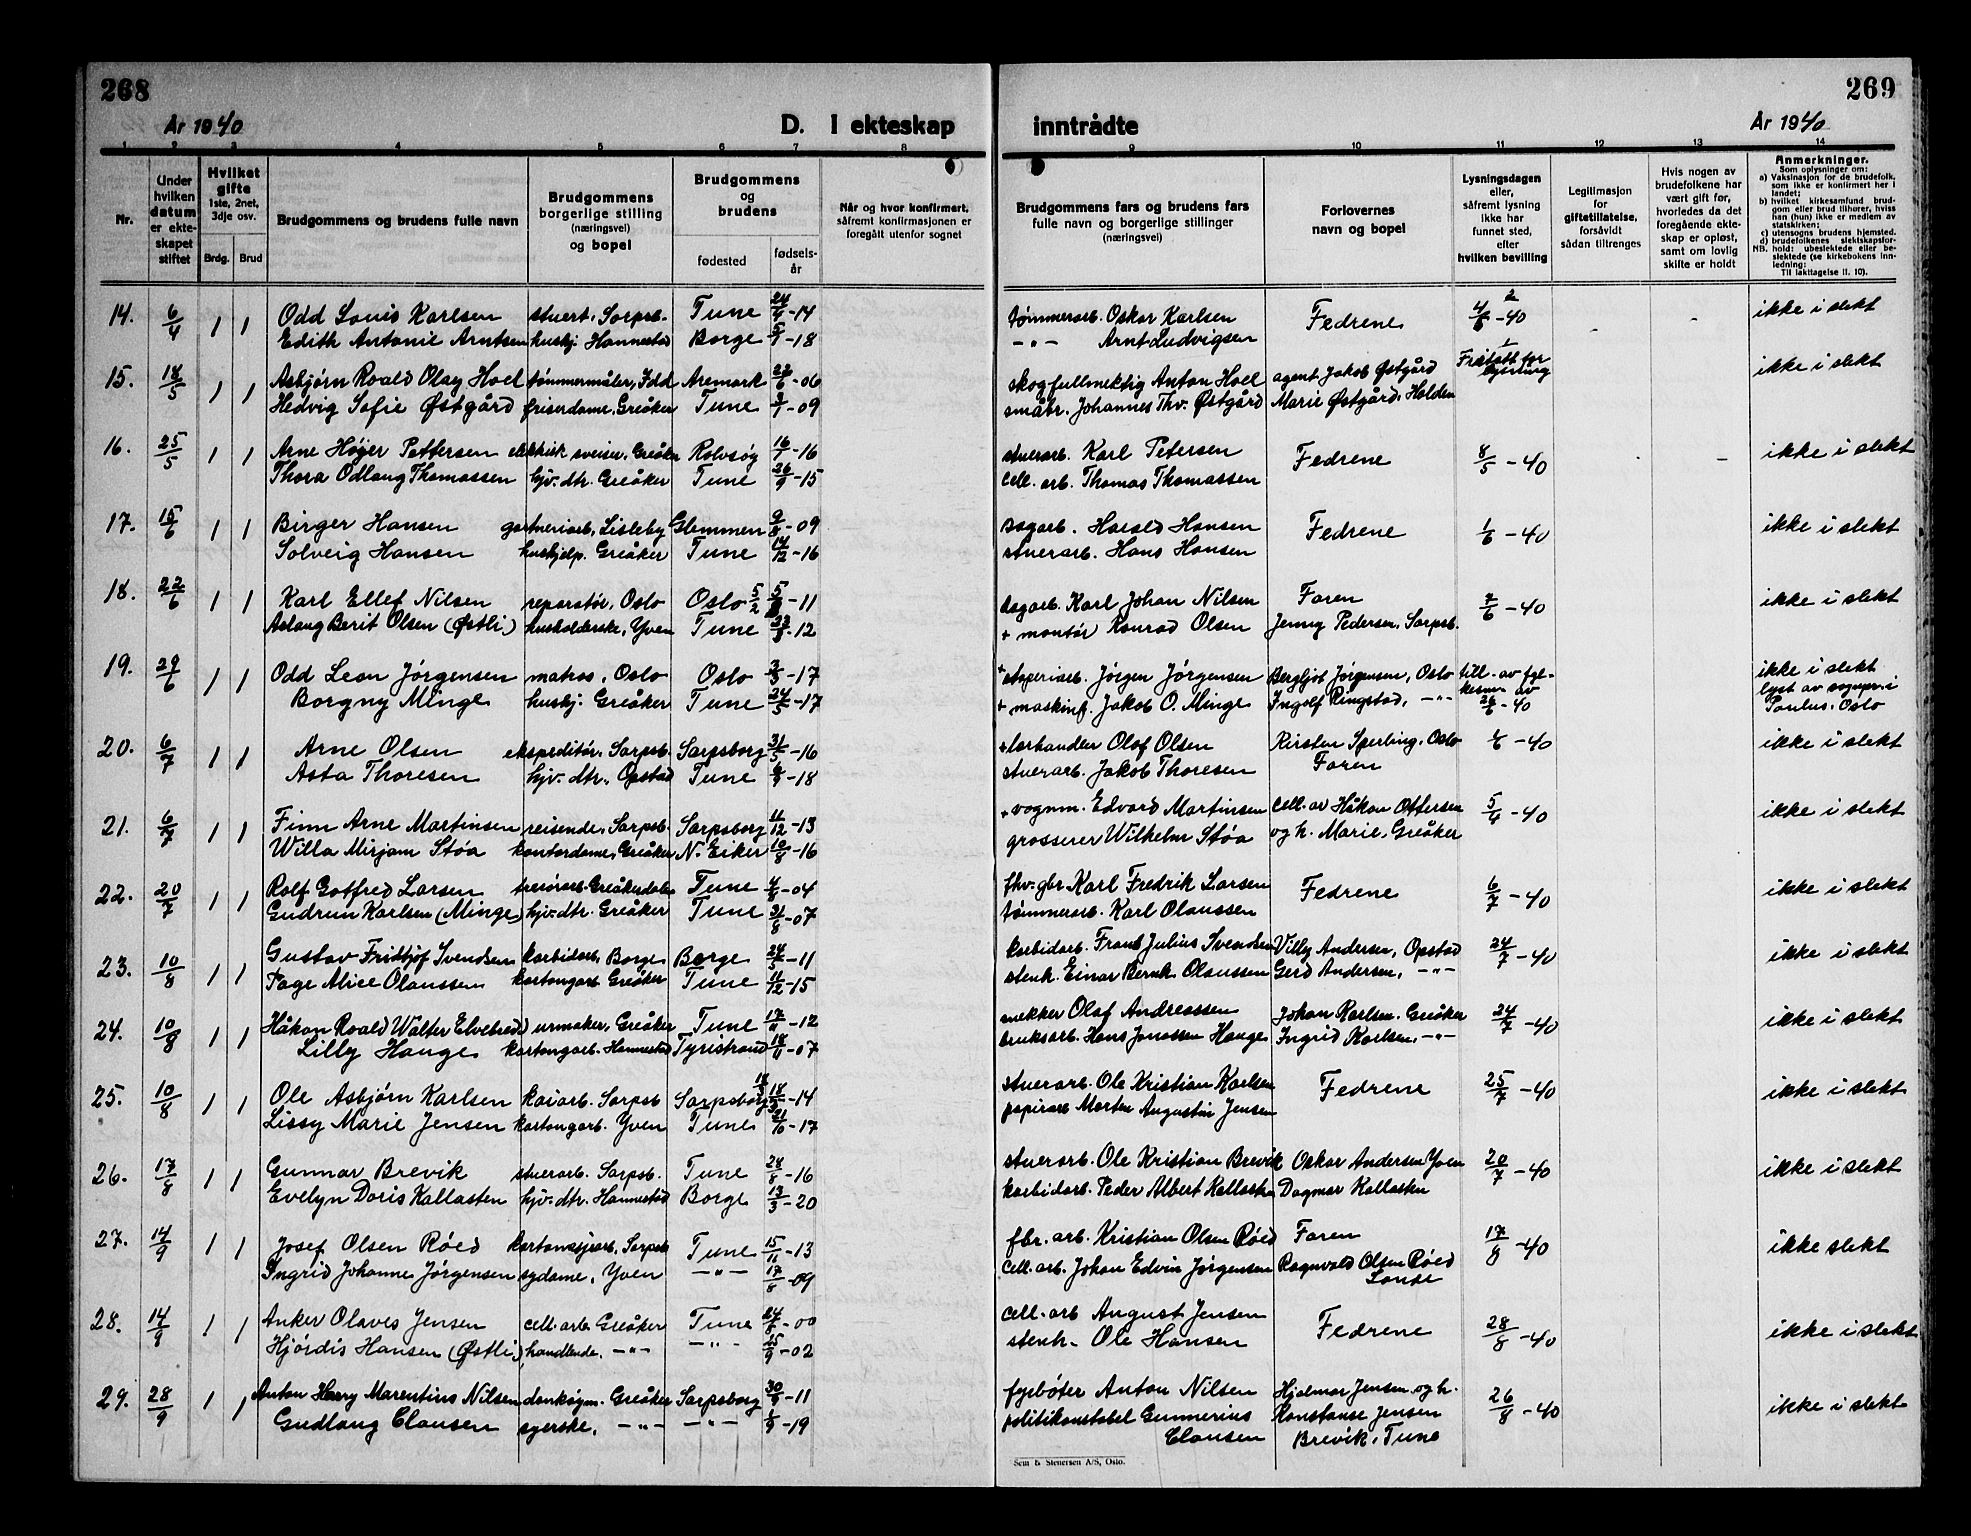 268
År 1940
D. I ekteskap
1 2 3 4 5 6 7 8
Nr.
Under hvilken datum er ekteskapet stiftet
Hvilket gifte 1ste, 2net, 3dje osv.
Brdg. Brud
Brudgommens og brudens fulle navn
Brudgommens borgerlige stilling (næringsvei) og bopel
Brudgommens og brudens
fødested
fødselsår
Når og hvor konfirmert, såfremt konfirmasjonen er foregått utenfor sognet
14. 6/4 1 1 Odd Louis Karlsen stuert, Sarpsb. Tune 24/4-14
Edith Antonie Arntsen huskj. Hannestad Borge -18
15. 18/5 1 1 Asbjørn Roald Olay Hoel tømmermåler, Idd Aremark -06
Hedvig Sofie Østgård friserdame, Greåker Tune 3/1-09
16. 25/5 1 1 Arne Høger Pettersen elektrisk sveiser, Greåker Rolvsøy 16/1-16
Thora Odlaug Thomassen hjv. dtr. Greåker Tune 26/9-15
17. 15/6 1 1 Birger Hansen gartneriarb, Lisleby Glemmen -09
Solveig Hansen hushjelp. Greåker Tune 14/12-16
18. 22/6 1 1 Karl Ellef Nilsen reparatør, Oslo Oslo 5/2 -11
Aslaug Berit Olsen (Østli) husholderske, Yven Tune -12
19. 29/6 1 1 Odd Leon Jørgensen matros, Oslo Oslo 3/3-17
Borgny Minge huskj. Greåker Tune 24/5-17
20. 6/7 1 1 Arne Olsen ekspeditør, Sarpsb. Sarpsborg 31/5-16
Asta Thoresen hjv. dtr., Opstad Tune 6/9-18
21. 6/7 1 1 Finn Arne Martinsen reisende, Sarpsb. Sarpsborg 11/12-13
Willa Mirjam Støa kontordame, Greåker N. Eiker 10/8-16
22. 20/7 1 1 Rolf Gotfred Larsen Greåkerdalen Tune -04
Gudrun Karlsen (Minge) hjv. dtr. Greåker Tune 31/8-07
23. 10/8 1 1 Gustav Fridtjof Svendsen karbidarb, Borge Borge 24/5-11
Tage Alice Olaussen kartongarb. Greåker Tune 11/12-15
24. 10/8 1 1 Håkon Roald Walter Elvebred urmaker, Greåker Tune 17/11-12
Lilly Hauge kartongarb. Hannestad Tyristrand 18/11-07
25. 10/8 1 1 Ole Asbjørn Karlsen kaiarb. Sarpsb Sarpsborg -14
Lissy Marie Jensen kartongarb. Yven Tune 21/10-17
26. 17/8 1 1 Gunnar Brevik stuerarb. Sarpsb. Tune 28/8-16
Evelyn Doris Kallasten hjv. dtr. Hannestad Borge 13/3-20
27. 14/9 1 1 Josef Olsen Røed Sarpsb Tune 15/11-13
Ingrid Johanne Jørgensen sydame, Yven -"- 17/8-09
28. 14/9 1 1 Anker Olaves Jensen cell. arb. Greåker Tune 24/8-00
Hjørdis Hansen (Østli) handlende, -"- -"- 15/9-02
29. 28/9 1 1 Anton Harry Marentius Nilsen Greåker Sarpsborg 30/9-11
Gudlaug Clausen syerske, -"- -"- -19
269
År 1940
inntrådte
9 10 11 12 13 14
Brudgommens fars og brudens fars fulle navn og borgerlige stillinger (næringsvei)
Forlovernes navn og bopel
Lysningsdagen eller, såfremt lysning ikke har funnet sted, efter hvilken bevilling
Legitimasjon for giftetillatelse, forsåvidt sådan tiltrenges
Hvis nogen av brudefolkene har vært gift før, hvorledes da det foregående ekteskap er opløst, samt om lovlig skifte er holdt
Anmerkninger.
Som oplysninger om:
a) Vaksinasjon for de brudefolk, som ikke er konfirmert her i landet;
b) hvilket kirkesamfund brudgom eller brud tilhører, hvis han (hun) ikke er medlem av statskirken;
c) utensogns brudens hjemsted.
d) brudefolkenes slektskapsforhold: ubeslektede eller beslektede (se kirkebokens innledning:
NB. Til iakttagelse II. 10).
tømmerarb. Oskar Karlsen Fedrene -40 ikke i slekt
-"- Arnt Ludvigsen
skogfullmektig Anton Hoel agent Jakob Østgård Fritatt for lysning ikke i slekt
småbr. Johannes Thv. Østgård Marie Østgård, Halden
stuerarb. Karl Petersen Fedrene 8/5-40 ikke i slekt
cell. arb. Thomas Thomassen
dagarb. Harald Hansen Fedrene 1/6-40 ikke i slekt
stuerarb. Hans Hansen
dagarb. Karl Johan Nilsen Faren 7/6-40 ikke i slekt
+ montør Konrad Olsen Jenny Pedersen, Sarpsb.
+ Jørgen Jørgensen Bergljot Jørgensen, Oslo till. av fylkesm. av 26/6-40 ikke i slekt
lyst av sognepr. i
+ maskinf. Jakob O. Minge Ingolf Ringstad, -"- Paulus, Oslo
+ Olaf Olsen Kirsten Sperling, Oslo -40 ikke i slekt
stuerarb. Jakob Thoresen Faren
+ vognm. Edvard Martinsen cell. ar Håkon Ottersen 5/4-40 ikke i slekt
grosserer Wilhelm Støa og h. Marie, Greåker
fhv. gbr. Karl Fredrik Larsen Fedrene 6/7-40 ikke i slekt
tømmerarb. Karl Olaussen
karbidarb. Frans Julius Svendsen Villy Andersen, Opstad 24/7-40 ikke i slekt
stenh. Einar Bernh. Olaussen Gerd Andersen, -"-
mekker Olaf Andreassen Johan Karlsen, Greåker 24/7-40 ikke i slekt
bruksarb. Hans Jonassen Hauge Ingrid Karlsen, -"-
stuerarb. Ole Kristian Karlsen Fedrene 25/7-40 ikke i slekt
papirarb Morten Augustin Jensen
stuerarb. Ole Kristian Brevik Oskar Andersen Yven 20/7-40 ikke i slekt
karbidarb. Peder Albert Kallasten Dagmar Kallasten
fbr. arb. Kristian Olsen Røed Faren 17/8-40 ikke slekt
cell. arb. Johan Edvin Jørgensen Ragnvald Olsen Røed
Sande
cell. arb August Jensen Fedrene 28/8-40 ikke i slekt
stenh. Ole Hansen
fyrbøter Anton Nilsen Hjalmar Jensen og h. 26/8-40 ikke i slekt
politikonstabel Gunnerius Konstanse Jensen
Clausen Brevik, Tune
Sem & Stenersen A/S, Oslo.